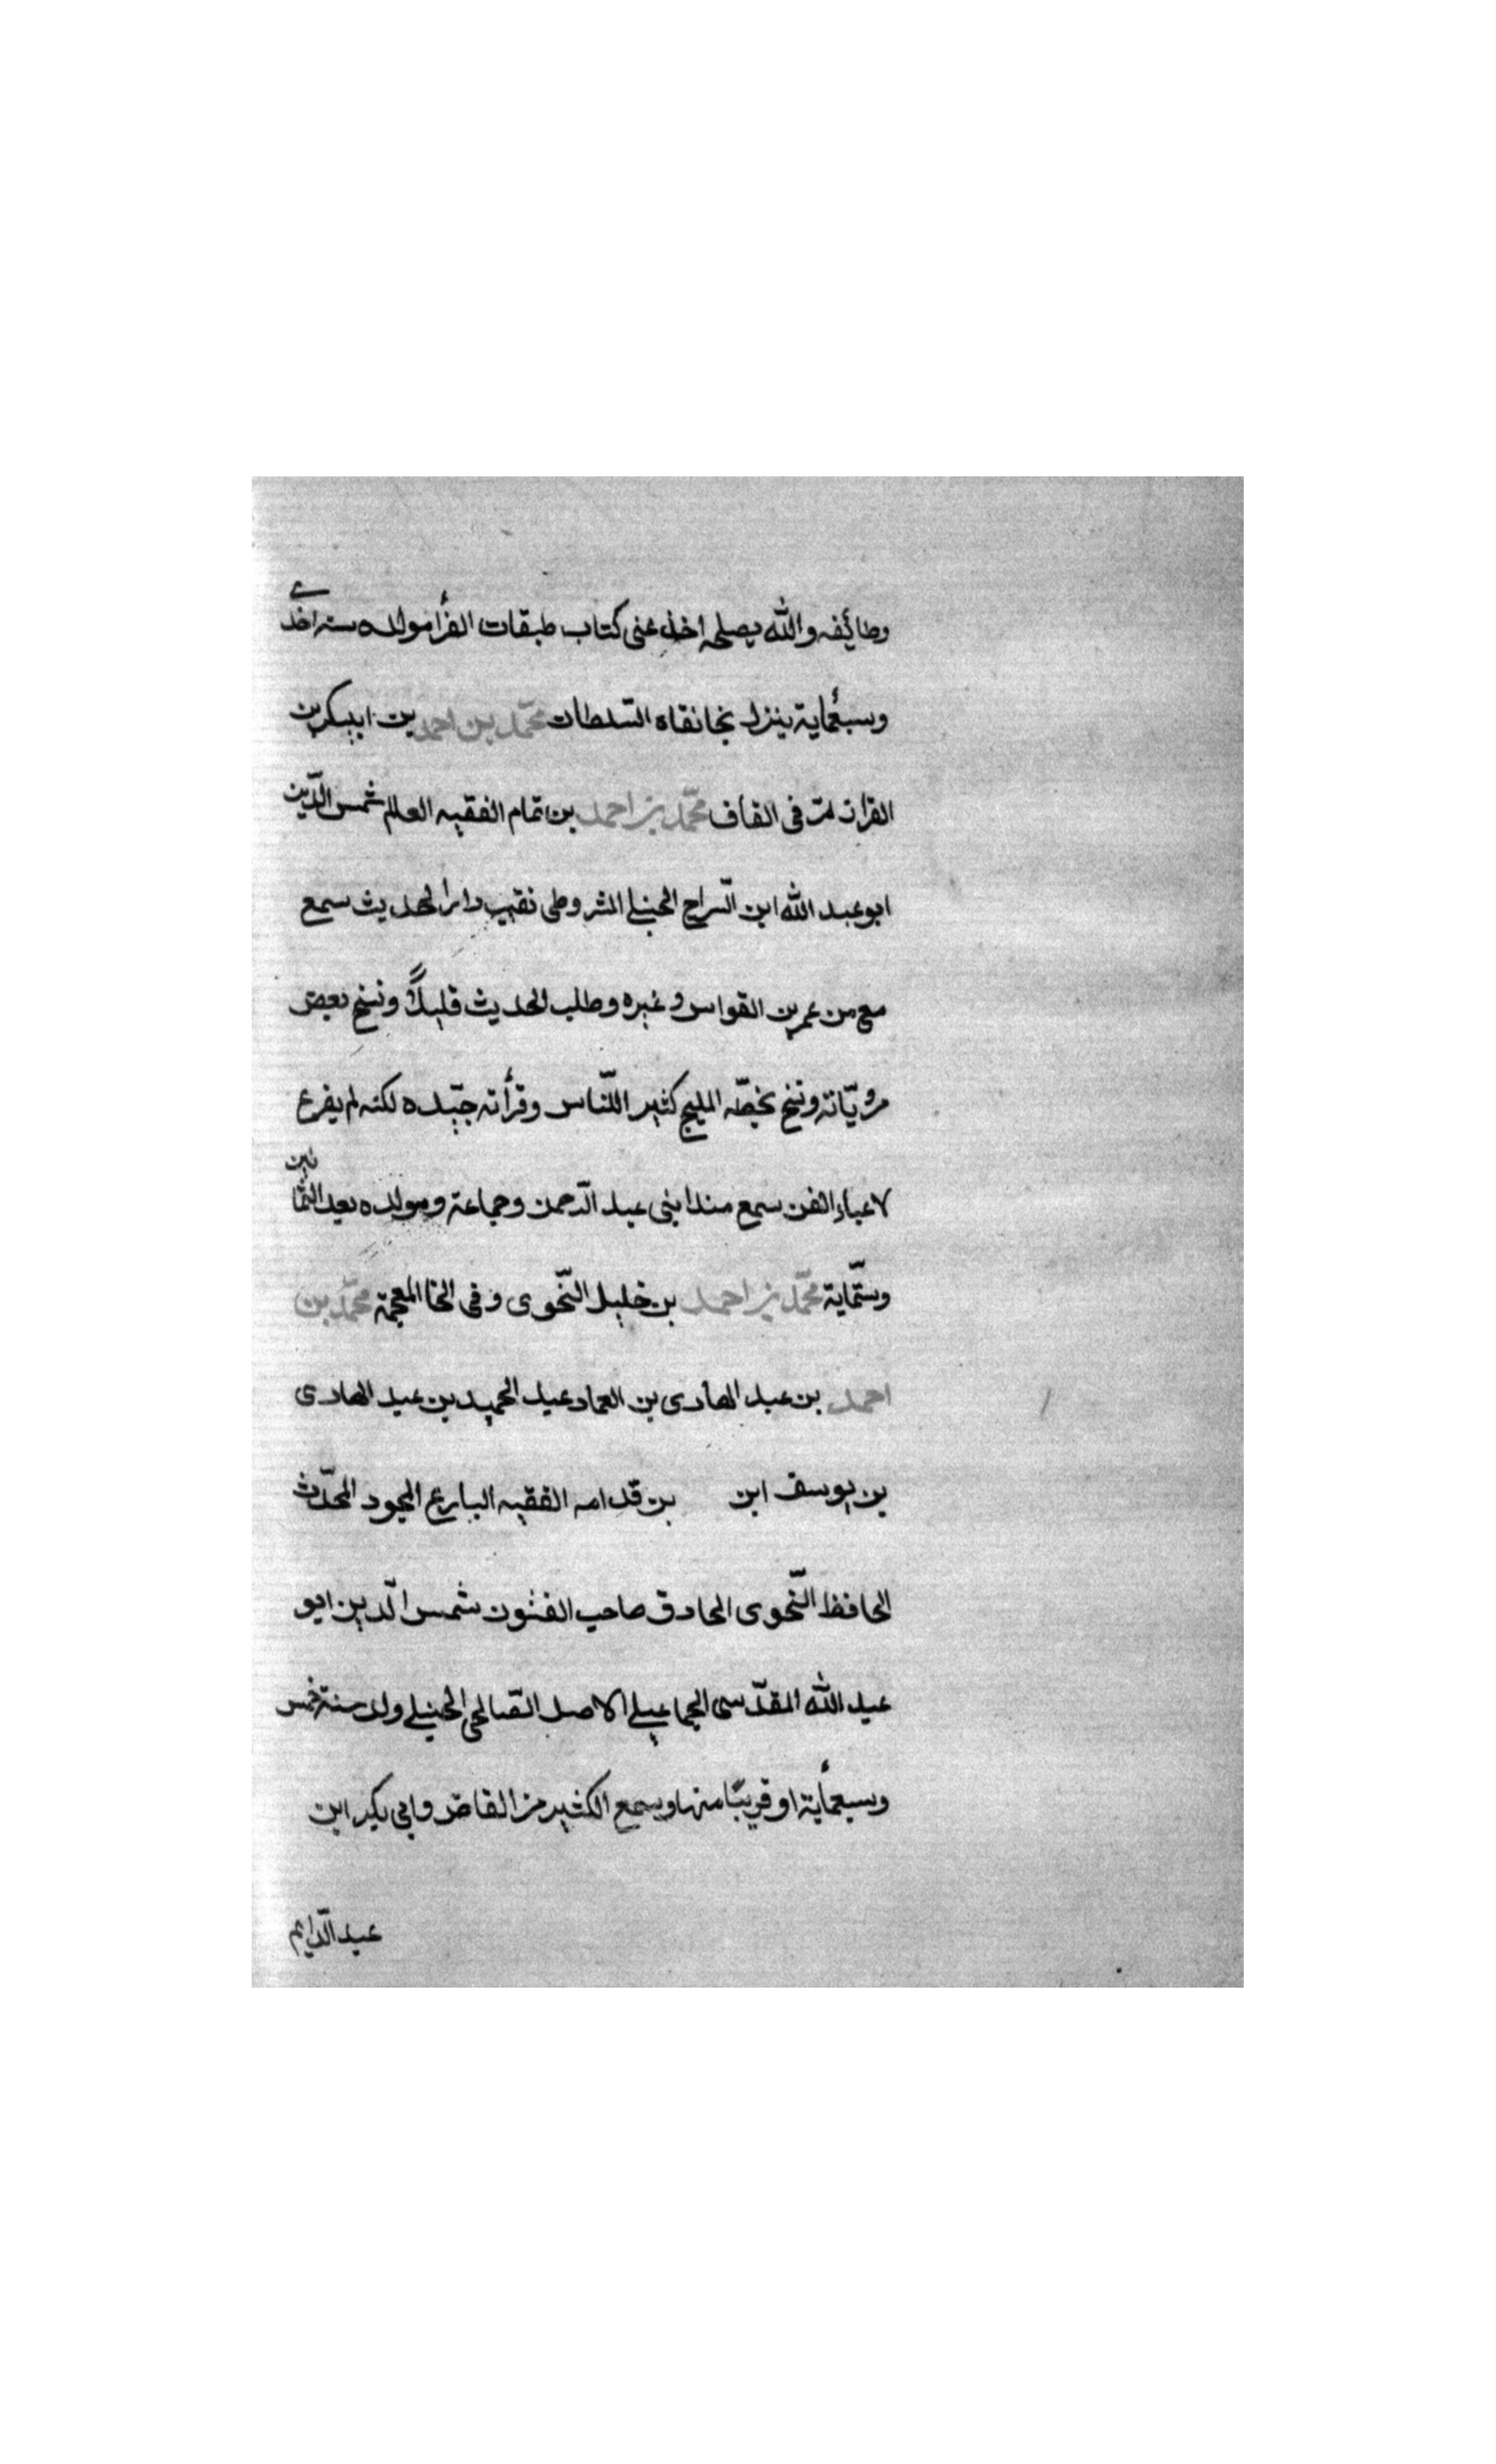 وظائفه والله يصلحه اخذ عنى كتاب طبقات القرأ مولده سنه احدى
وسبعمأية ينزل بخانقاه السّلطان محمّد بن احمد بن ابىبكر بن
القزاز مرّ فى القاف محمّد بن احمد بن تمام الفقيه العالم شمس الدّين
ابو عبد الله ابن السّراج الحنبلى الشروطى نقيب دار الحديث سمع
مع من عمر بن القواس وغيره وطلب الحديث قليلاً ونسخ بعض
مرويّاته ونسخ بخطّه المليح كثير اللنّاس وقرأته جيّده لكنه لم يفرع
لاعباء الفن سمع منه ابنى عبد الرّحمن وجماعة ومولده بعد الثمانين
وستّماية محمّد بن احمد بن خليل النّحوى وفى الخا المعجمة محمّد بن
احمد بن عبد الهادى بن العماد عبد الحميد بن عبد الهادى
بن يوسف ابن بن قدامه الفقيه البارع المجود المحدّث
الحافظ النّحوى الحاذق صاحب الفنون شمس الدّين ابو
عبد الله المقدّسى الجماعيلى الاصل الصّالحى الحنبلى ولد سنة خمس
وسبعمأية او قريبًا منها وسمع الكثير من القاضى وابى بكر ابن
عبد الدّايم